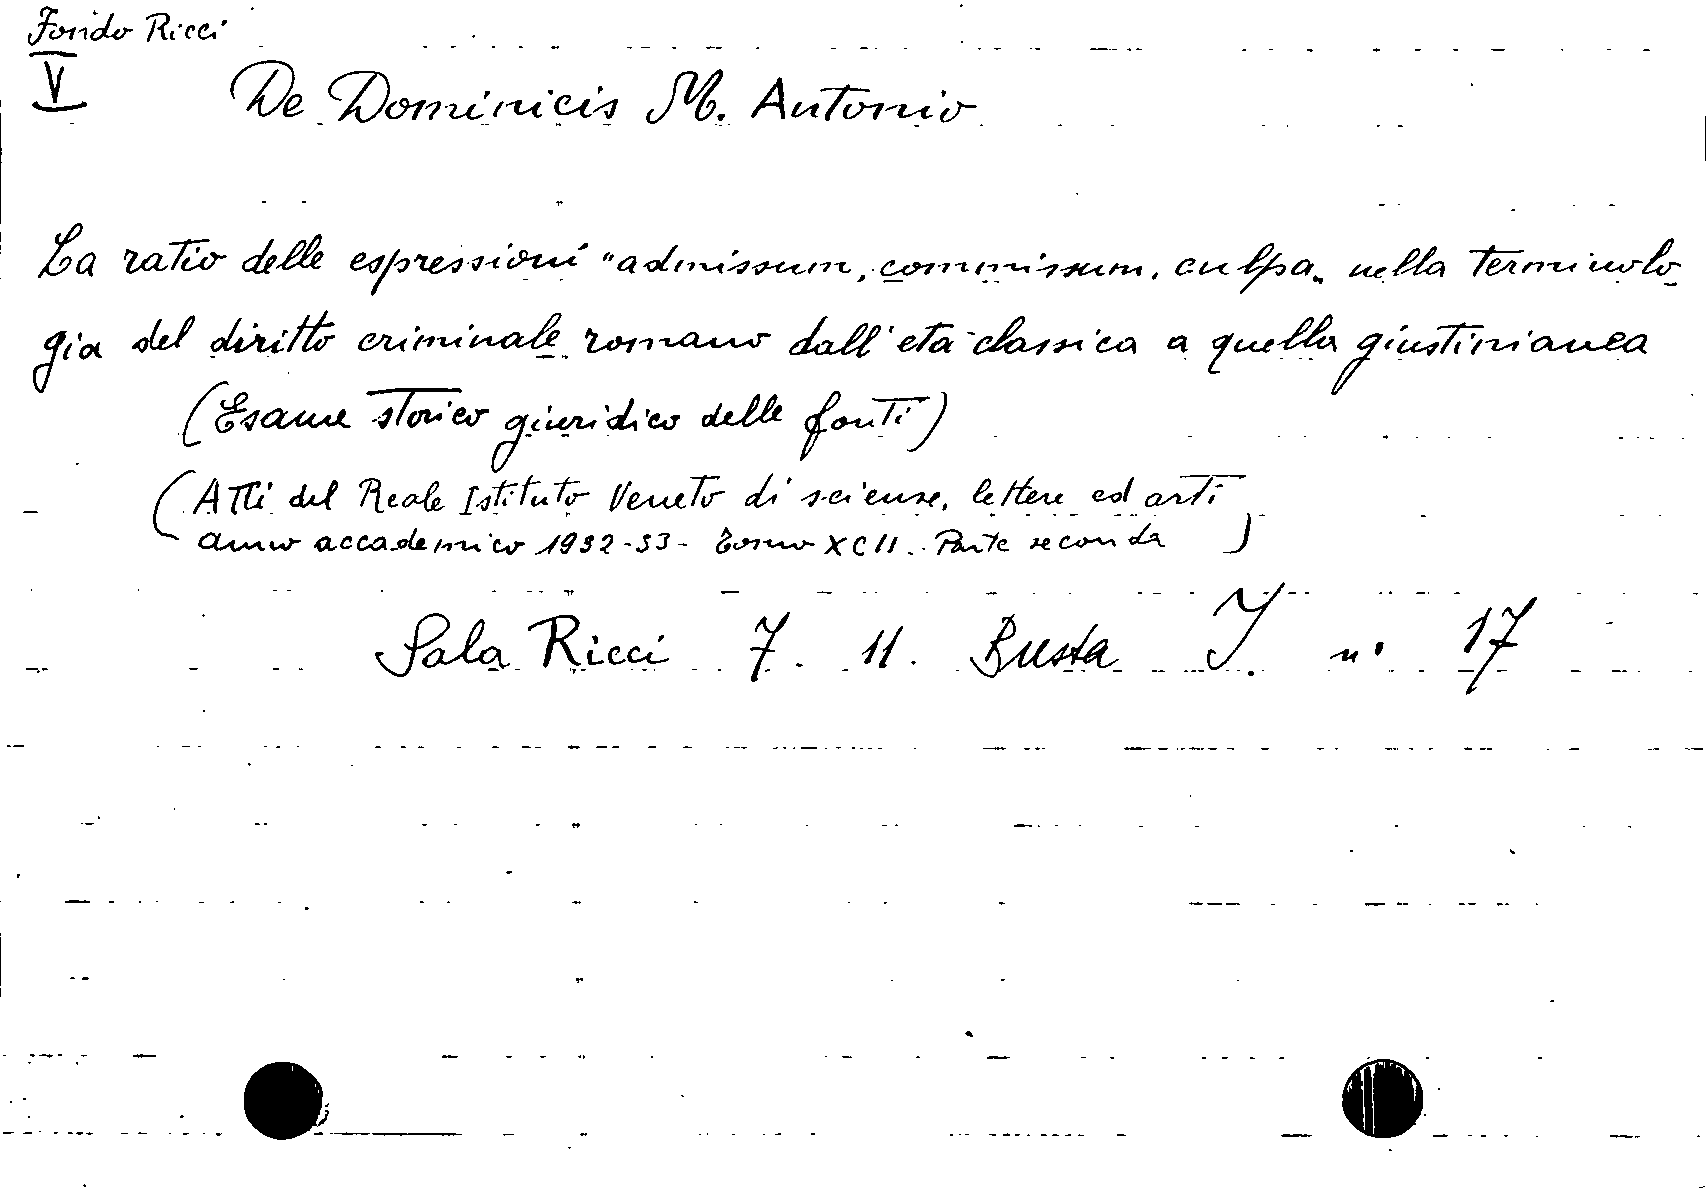 Fondo Ricci
V
De Dominicis M. Antonio
La ratio delle espressioni "admissum, commissum, culpa„ nella terminolo
gia del diritto criminale romano dall'età classica a quella giustinianea
(Esame storico giuridico delle fonti)
(Atti del Reale Istituto Veneto di scienze, lettere ed arti
anno accademico 1932-33- Tomo XCII. Parte seconda)
Sala Ricci 7. 11. Busta I. n° 17